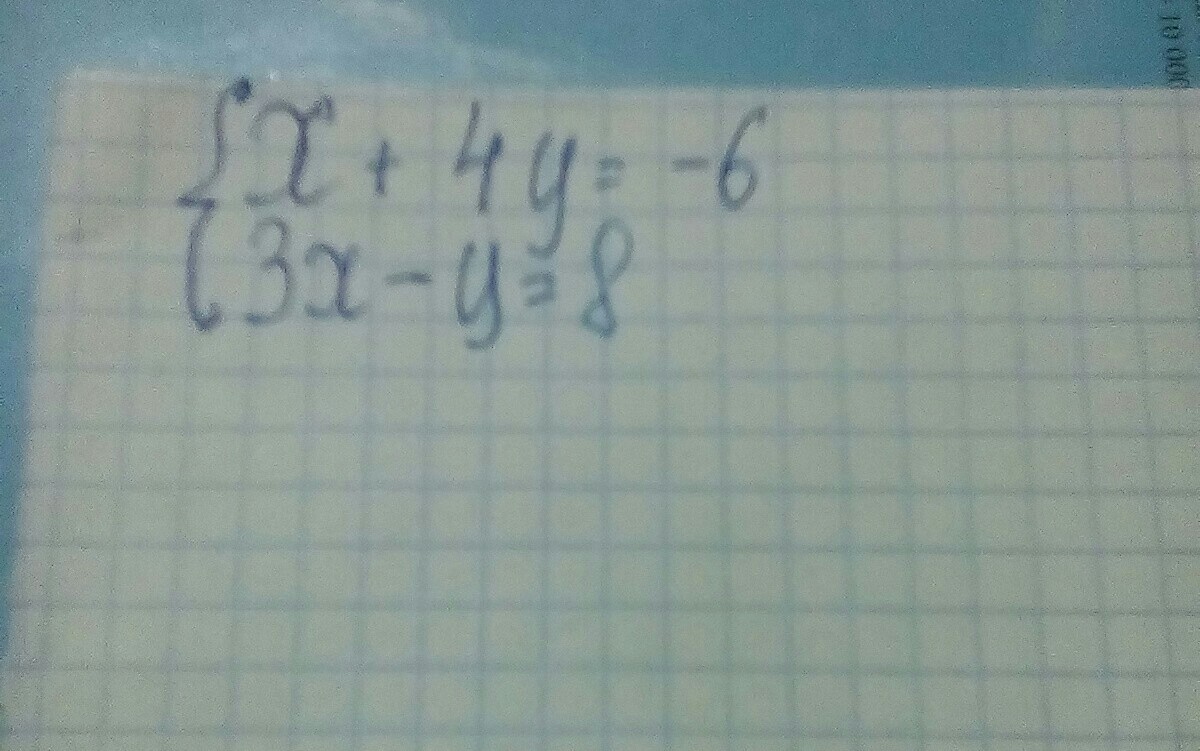 {x + 4y = -6
{3x - y = 8
10 000